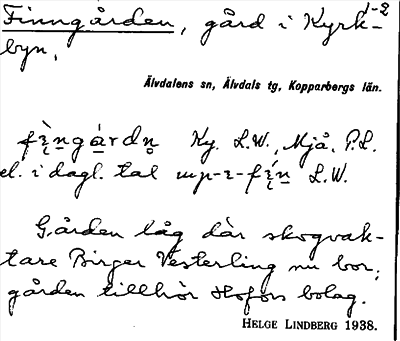 Finngården, gård i Kyrk- 1-2
byn.
Älvdalens sn, Älvdals tg, Kopparbergs län.
fìngárdn Ky. L.W., Mjå. P.L.
el. i dagl. tal up-i-fín L.W.
Gården låg där skogvak-
tare Birger Vesterling nu bor;
gården tillhör Hofors bolag.
HELGE LINDBERG 1938.